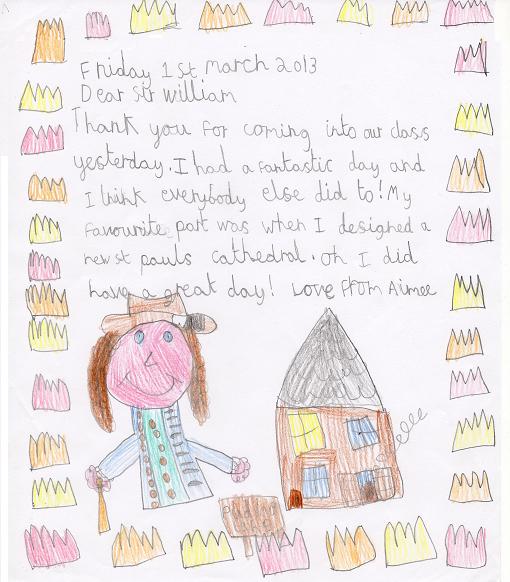 Friday 1st march 2013
Dear Sir William
Thank you for coming into our class
yesterday. I had a fantastic day and
I think everybody else did to! My
favourite part was when I designed a
new st pauls cathedral. oh I did
have a great day! Love from Aimee